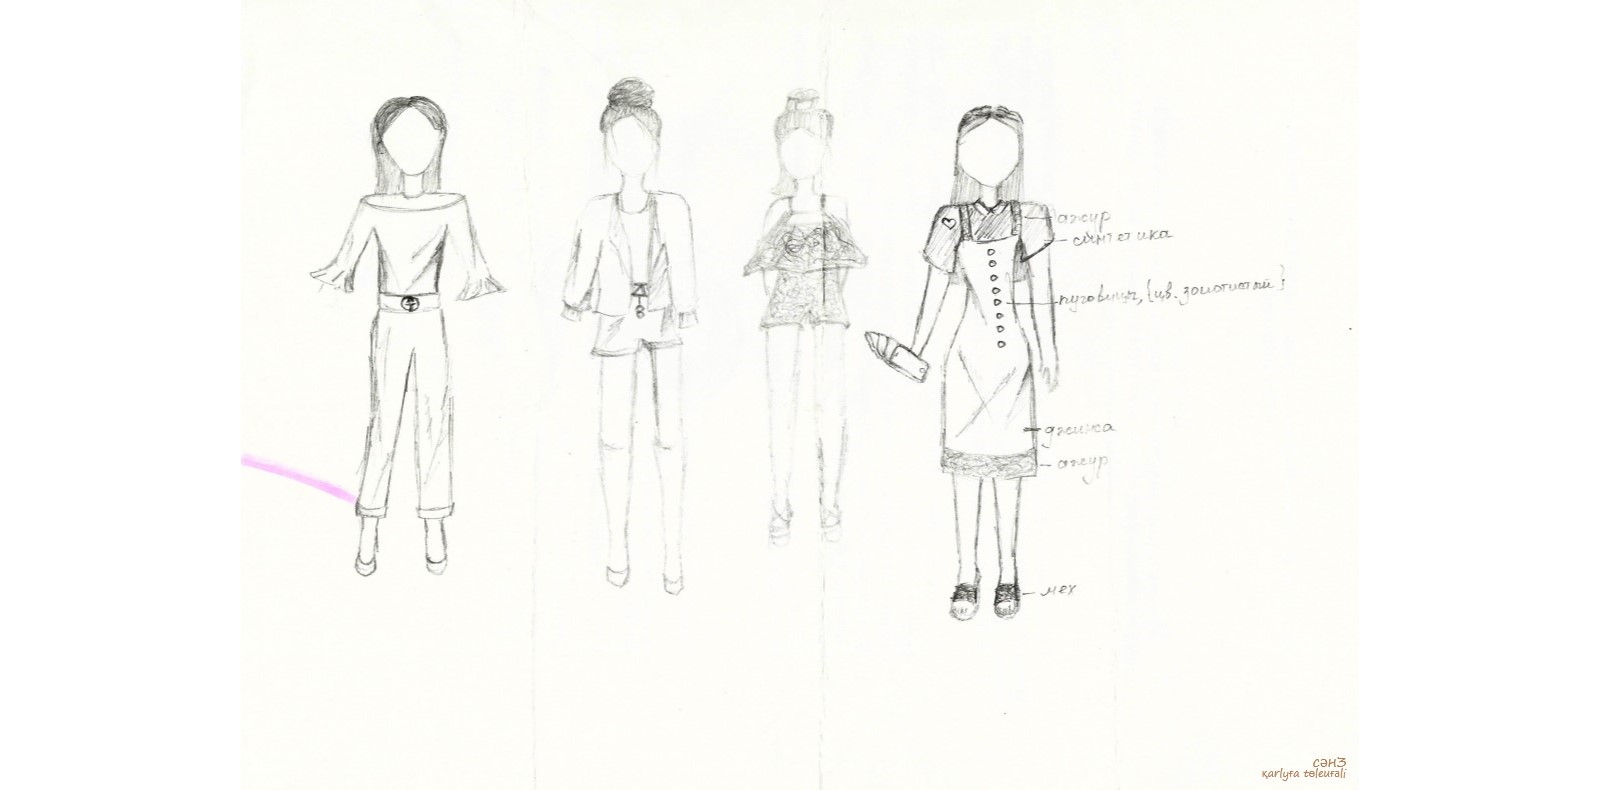 ажур
синтетика
пуговицы, (цв. золотистый)
джинса
ажур
мех
сәнӠ
қarlyға tөleuғali